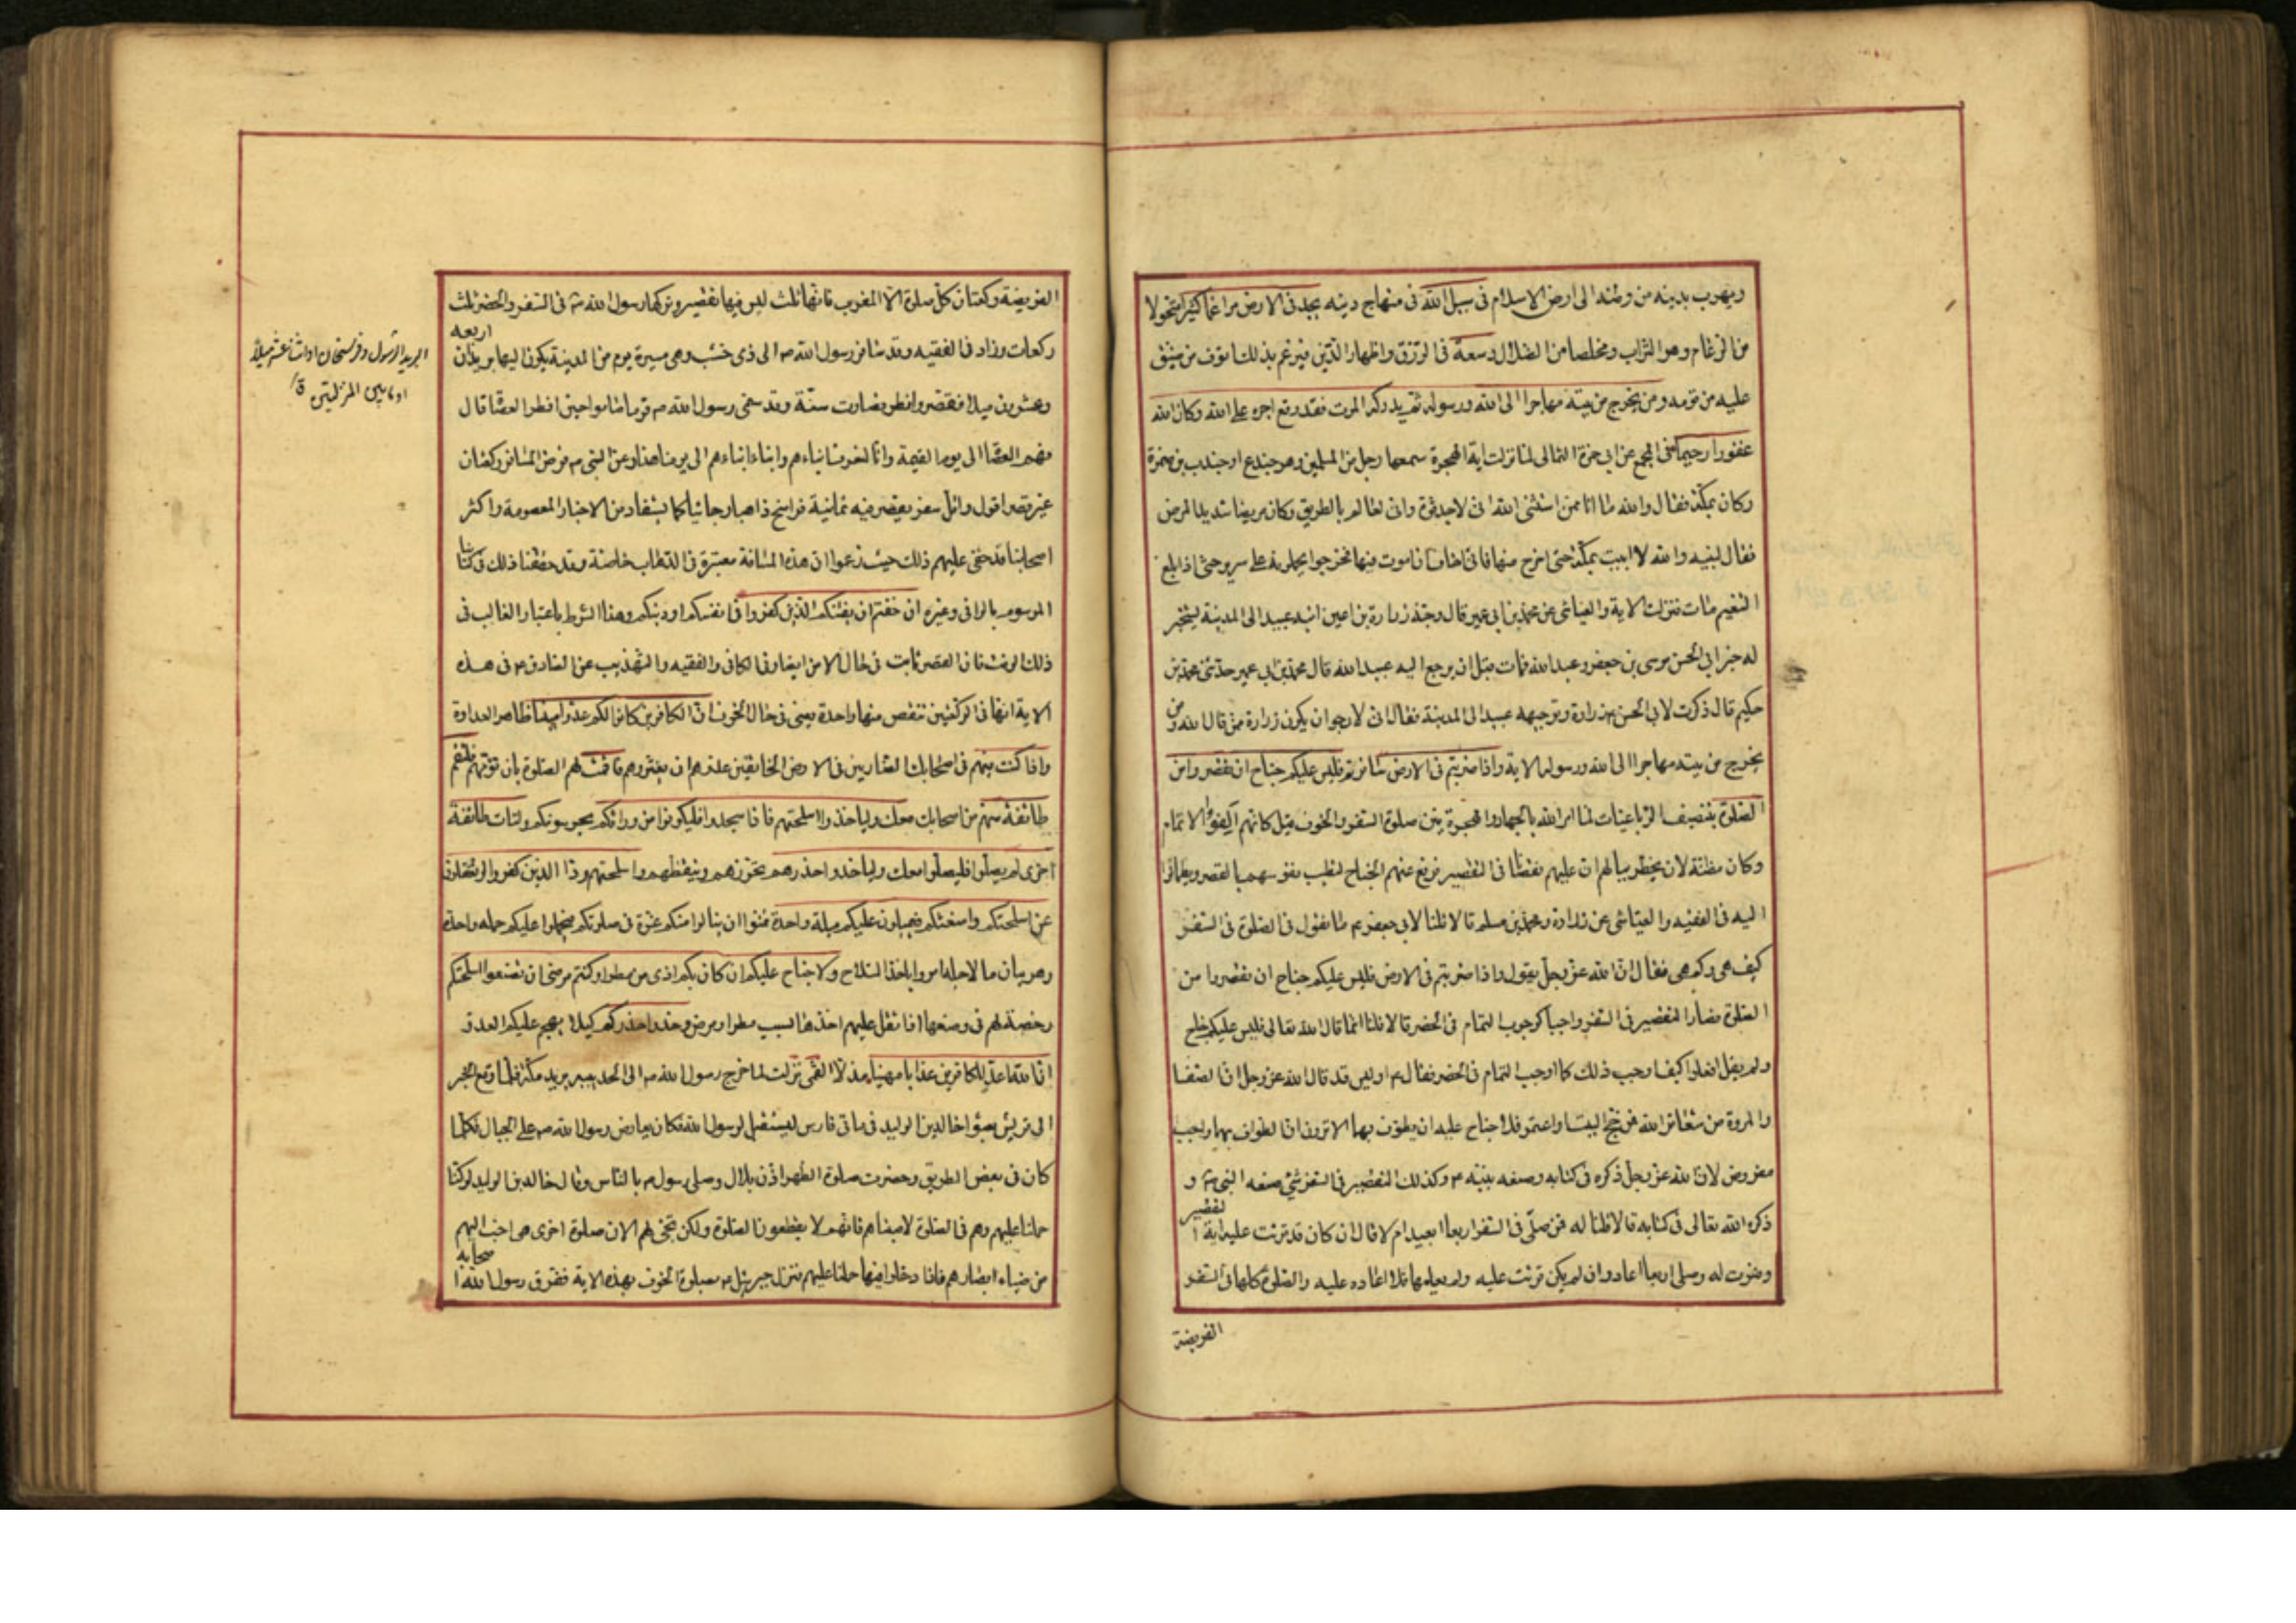 ويهرب بدينه من وطنه الى ارض الاسلام فى سبيل الله فى منهاج دينه يجد فى الارض مراغما كثيرا متحولا
من الرغام وهو التراب ومخلصا من الضلال وسعة فى الرزق واظهار الدين فيرغم بذلك انوف من ضيق
عليه من قومه ومن يخرج من بيته مهاجرا الى الله ورسوله ثم يدركه الموت فقد وقع اجره على الله وكان الله
غفورا رحيما فى المجمع عن ابى حمزة الثمالى لما نزلت اية الهجرة سمعها رجل من المسلمين وهو جندع او جندب بن ضمرة
وكان بمكة فقال والله ما انا ممن استثنى الله انى لاجد قوة وانى لعالم بالطريق وكان مريضا شديد المرض
فقال لبنيه والله لا ابيت بمكة حتى اخرج منها فانى اخاف ان اموت فيها فخرجوا يحملونه على سرير حتى اذا بلغ
التنعيم مات فنزلت الاية والعياشى عن محمد بن ابى عمير قال وجه زرارة بن اعين ابنه عبيد الى المدينة ليستخبر
له خبر ابى الحسن موسى بن جعفر وعبد الله فمات قبل ان يرجع اليه عبيد الله قال محمد بن ابى عمير حدثنى محمد بن
حكيم قال ذكرت لابى الحسن زرارة وتوجيهه عبيد الى المدينة فقال انى لارجو ان يكون زرارة ممن قال الله ومن
يخرج من بيته مهاجرا الى الله ورسوله الاية واذا ضربتم فى الارض سافرتم فليس عليكم جناح ان تقصروا من
الصلوة بتنصيف الرباعيات لما امر الله بالجهاد والهجرة بين صلوة السفر والخوف قيل كانهم الفوا الاتمام
وكان مظنة لان يخطر ببالهم ان عليهم نقصانا فى التقصير فرفع عنهم الجناح لتطيب نفوسهم بالقصر ويطمانوا
اليه فى الفقيه والعياشى عن زرارة ومحمد بن مسلم قالا قلنا لابى جعفر ع ما تقول فى الصلوة فى السفر
كيف هى وكم هى فقال ان الله عز وجل يقول واذا ضربتم فى الارض فليس عليكم جناح ان تقصروا من
الصلوة فصار التقصير فى السفر واجبا كوجوب التمام فى الحضر قالا قلنا انما قال الله تعالى فليس عليكم جناح
ولم يقل افعلوا كيف اوجب ذلك كما اوجب التمام فى الحضر فقال ع اوليس قد قال الله عز وجل ان الصفا
والمروة من شعائر الله فمن حج البيت او اعتمر فلا جناح عليه ان يطوف بهما الا ترون ان الطواف بهما واجب
مفروض لان الله عز وجل ذكره فى كتابه وصنعه نبيه ص وكذلك التقصير فى السفر شئ صنعه النبى ص و
ذكره الله تعالى فى كتابه قالا قلنا له فمن صلى فى السفر اربعا ايعيد ام لا قال ان كان قد قرئت عليه اية التقصير
وفسرت له وصلى اربعا اعاد وان لم يكن قرئت عليه ولم يعلمها فلا اعاده عليه والصلوة كلها فى السفر
الفريضة
الفريضة ركعتان كل صلوة الا المغرب فانها ثلث ليس فيها تقصير تركها رسول الله ص فى السفر والحضر ثلث
ركعات وزاد فى الفقيه وقد سافر رسول الله ص الى ذى خشب وهى مسيرة يوم من المدينة يكون اليها بريدان اربعة
وعشرون ميلا فقصر وافطر فصارت سنة وقد سمى رسول الله ص قوما صاموا حين افطر العصاة قال
فهم العصاة الى يوم القيمة وانا لنعرف ابناءهم وابناء ابناءهم الى يومنا هذا وعن النبى ص فرض المسافر ركعتان
غير قصر اقول واقل سفر يقصر فيه ثمانية فراسخ ذاهبا وجائيا كما يستفاد من الاخبار المعصومة واكثر
اصحابنا قد خفى عليهم ذلك حيث زعموا ان هذه المسافة معتبرة فى الذهاب خاصة وقد حققنا ذلك فى كتابنا
الموسوم بالوافى وغيره ان خفتم ان يفتنكم الذين كفروا فى انفسكم او دينكم وهذا الشرط باعتبار الغالب فى
ذلك الوقت فان القصر ثابت فى حال الامن ايضا وفى الكافى والفقيه والتهذيب عن الصادق ع فى هذه
الاية انها فى الركعتين تنقص منها واحدة يعنى فى حال الخوف ان الكافرين كانوا لكم عدوا مبينا ظاهر العداوة
واذا كنت فيهم فى اصحابك الضاربين فى الارض الخائفين عدوهم ان يغتروهم فاقمت لهم الصلوة بان تؤمهم فلتقم
طائفة منهم من اصحابك معك ولياخذوا اسلحتهم فاذا سجدوا فليكونوا من ورائكم يحرسونكم ولتات طائفة
اخرى لم يصلوا فليصلوا معك ولياخذوا حذرهم تحرزهم وتيقظهم واسلحتهم ود الذين كفروا لو تغفلون
عن اسلحتكم وامتعتكم فيميلون عليكم ميلة واحدة تمنوا ان ينالوا منكم غرة فى صلوتكم فيحملوا عليكم حمله واحدة
وهو بيان ما لاجله امروا باخذ السلاح ولا جناح عليكم ان كان بكم اذى من مطر او كنتم مرضى ان تضعوا اسلحتكم
رخصة لهم فى وضعها اذا ثقل عليهم اخذها بسبب مطر او مرض وخذوا حذركم كيلا يهجم عليكم العدو
ان الله اعد للكافرين عذابا مهينا مذلا القمى نزلت لما خرج رسول الله ص الى الحديبية يريد مكة فلما وقع الخبر
الى قريش بعثوا خالد بن الوليد فى ماتى فارس ليستقبل رسول الله فكان يعارض رسول الله ص على الجبال فلما
كان فى بعض الطريق وحضرت صلوة الظهر اذن بلال وصلى رسول ص بالناس وقال خالد بن الوليد لو كنا
حملنا عليهم وهم فى الصلوة لاصبناهم فانهم لا يقطعون الصلوة ولكن تجئ لهم الان صلوة اخرى هى احب اليهم
من ضياء ابصارهم فاذا دخلوا فيها حملنا عليهم فنزل جبرئيل ع بصلوة الخوف بهذه الاية ففرق رسول الله اصحابه
البريد الرسول وفرسخان او اثنا عشر ميلا
او ما بين المنزلتين ق